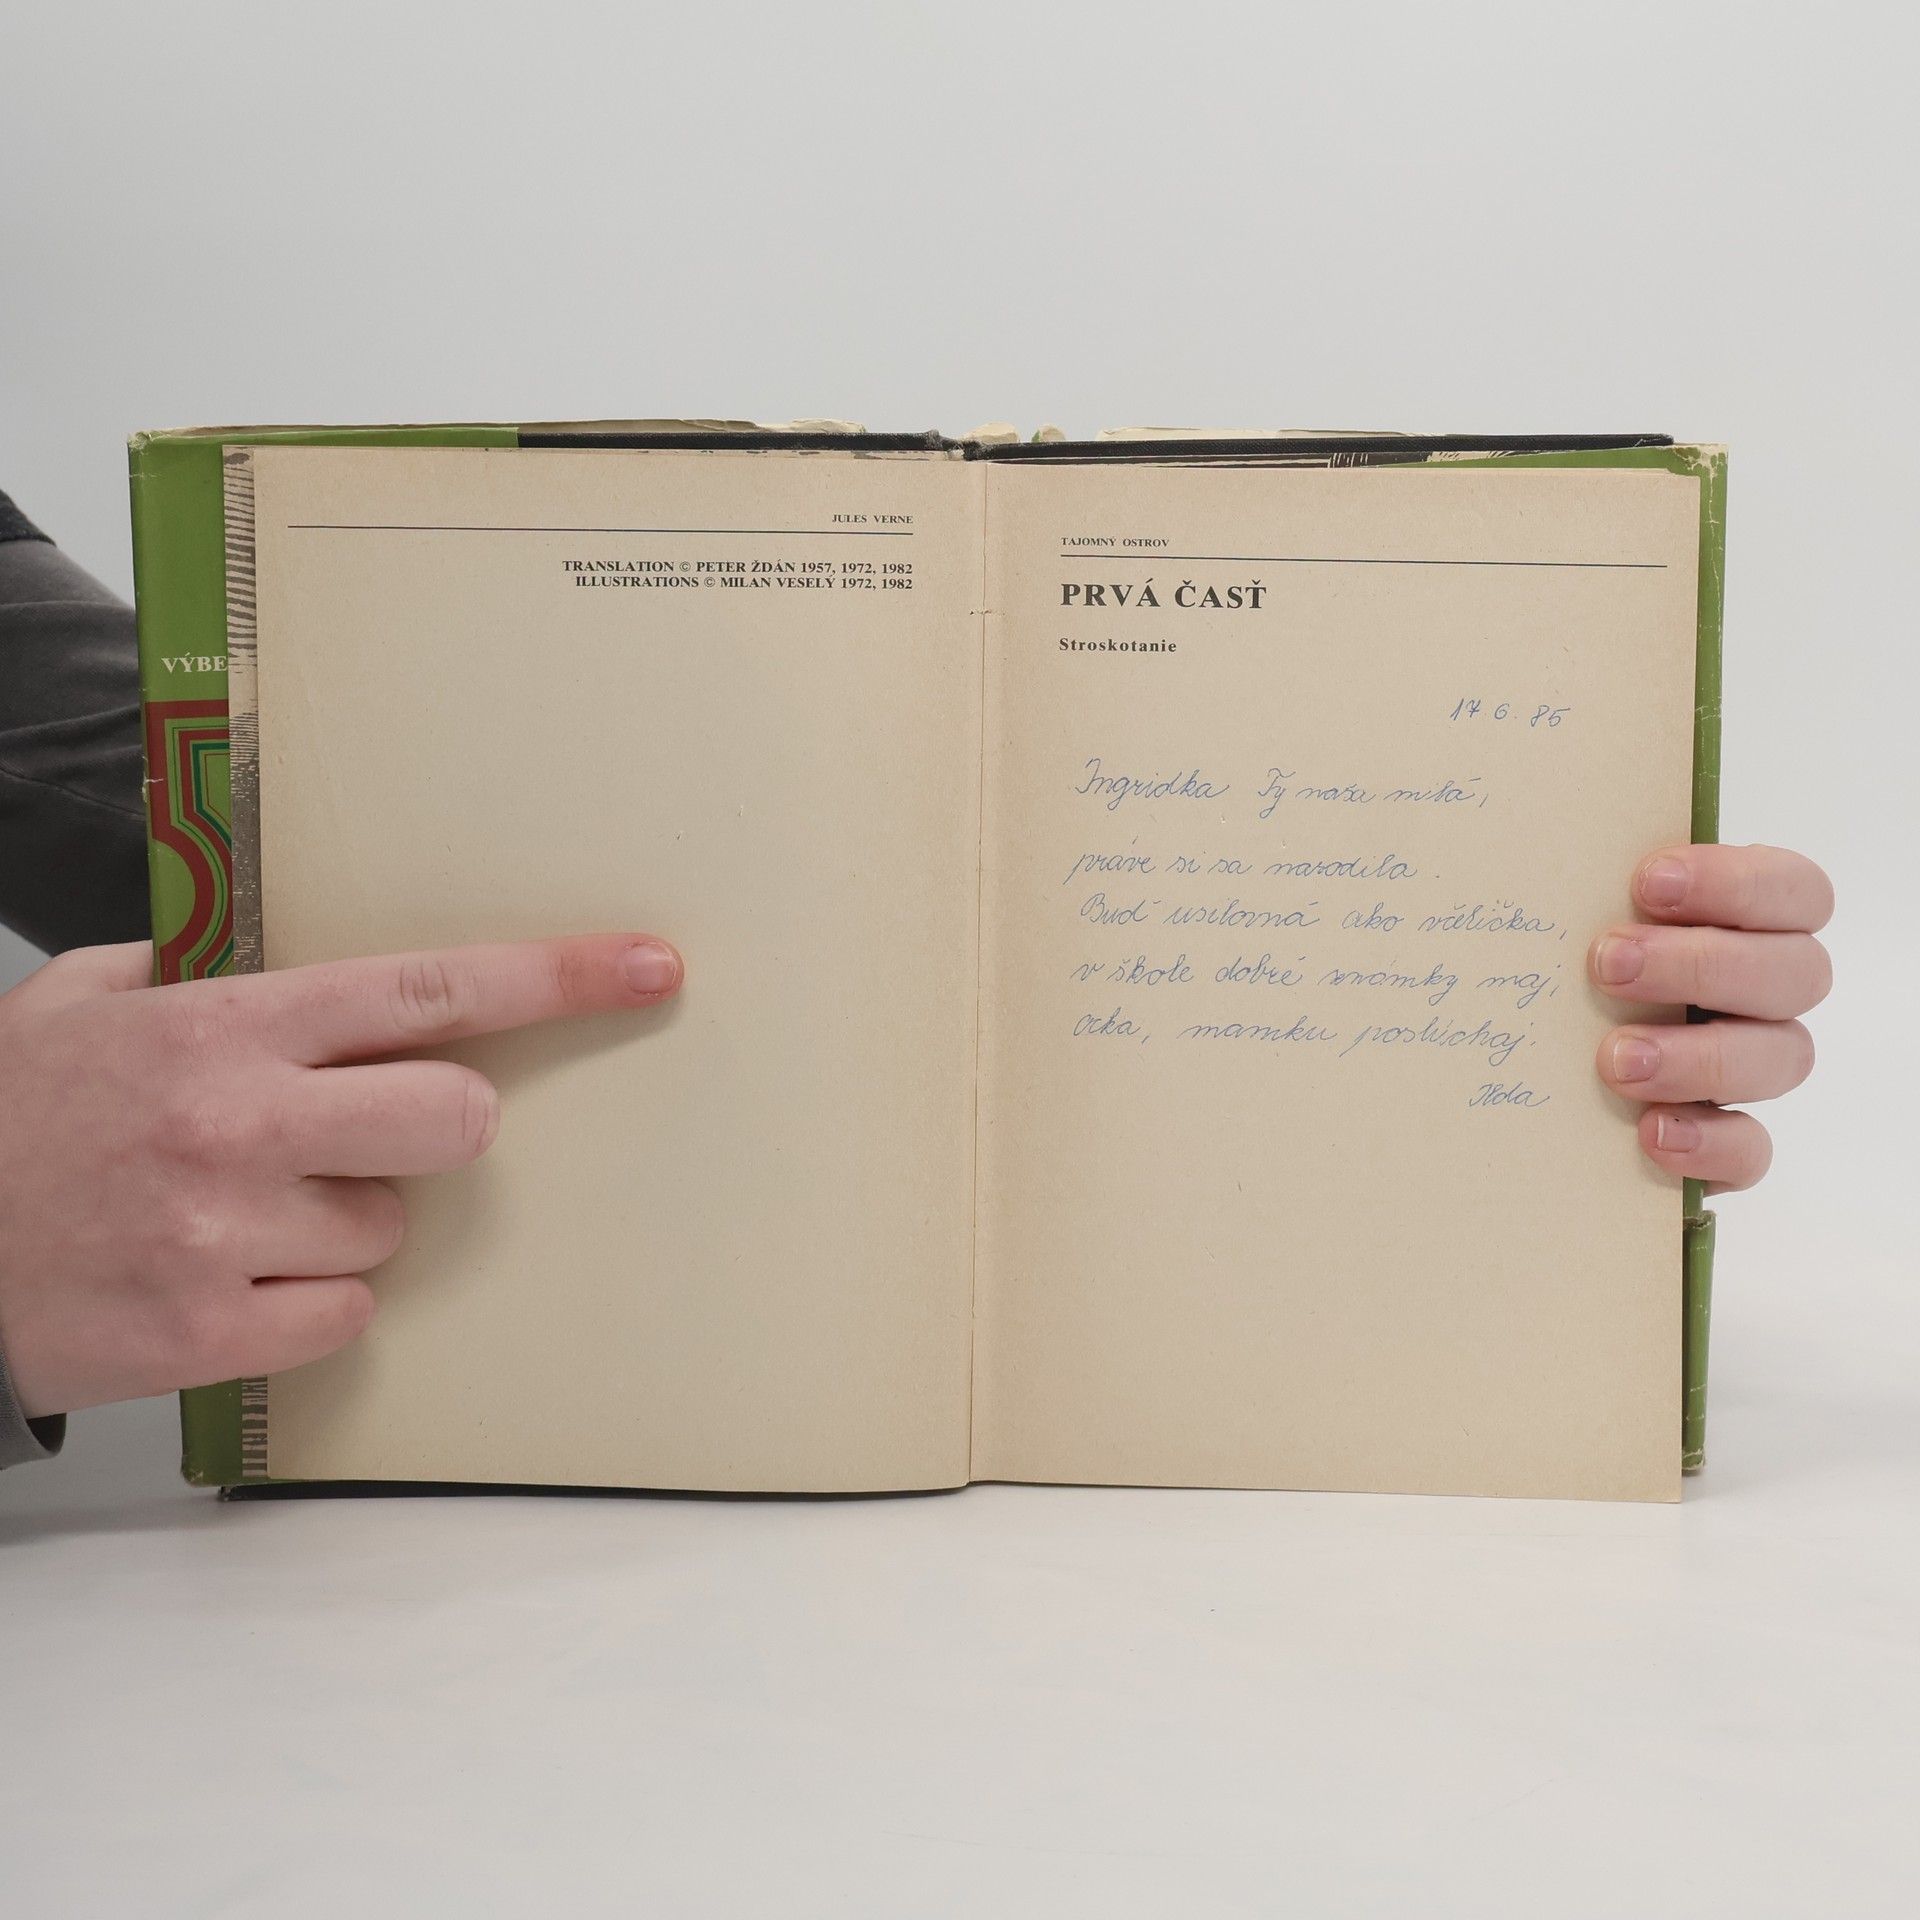 VÝBE
JULES VERNE
TRANSLATION © PETER ŽDÁN 1957, 1972, 1982
ILLUSTRATIONS © MILAN VESELÝ 1972, 1982
TAJOMNÝ OSTROV
PRVÁ ČASŤ
Stroskotanie
17. 6. 85
Ingridka Ty naša milá,
práve si sa narodila.
Buď usilovná ako včelička,
v škole dobré známky maj,
ocka, mamku poslúchaj.
Ilda